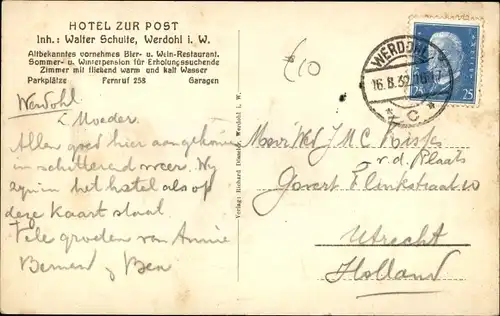 HOTEL ZUR POST
Inh.: Walter Schulte, Werdohl i. W.
Altbekanntes vornehmes Bier- u. Wein-Restaurant.
Sommer- u. Winterpension für Erholungssuchende
Zimmer mit fließend warm und kalt Wasser
Parkplätze Fernruf 258 Garagen
€10
WERDOHL
16.8.32 16-17
* c *
25 25
Werdohl.
L Moeder.
Allen goed hier aangekomen
in schitterend weer. Wij
zijn in het hotel als op
deze kaart staat.
Vele groeten van Annie
Bernard & Ben
Verlag: Richard Werdohl i. W.
Mevr. Wed J M C
v. d. Plaats
Govert Flinkstraat 10
Utrecht
Holland